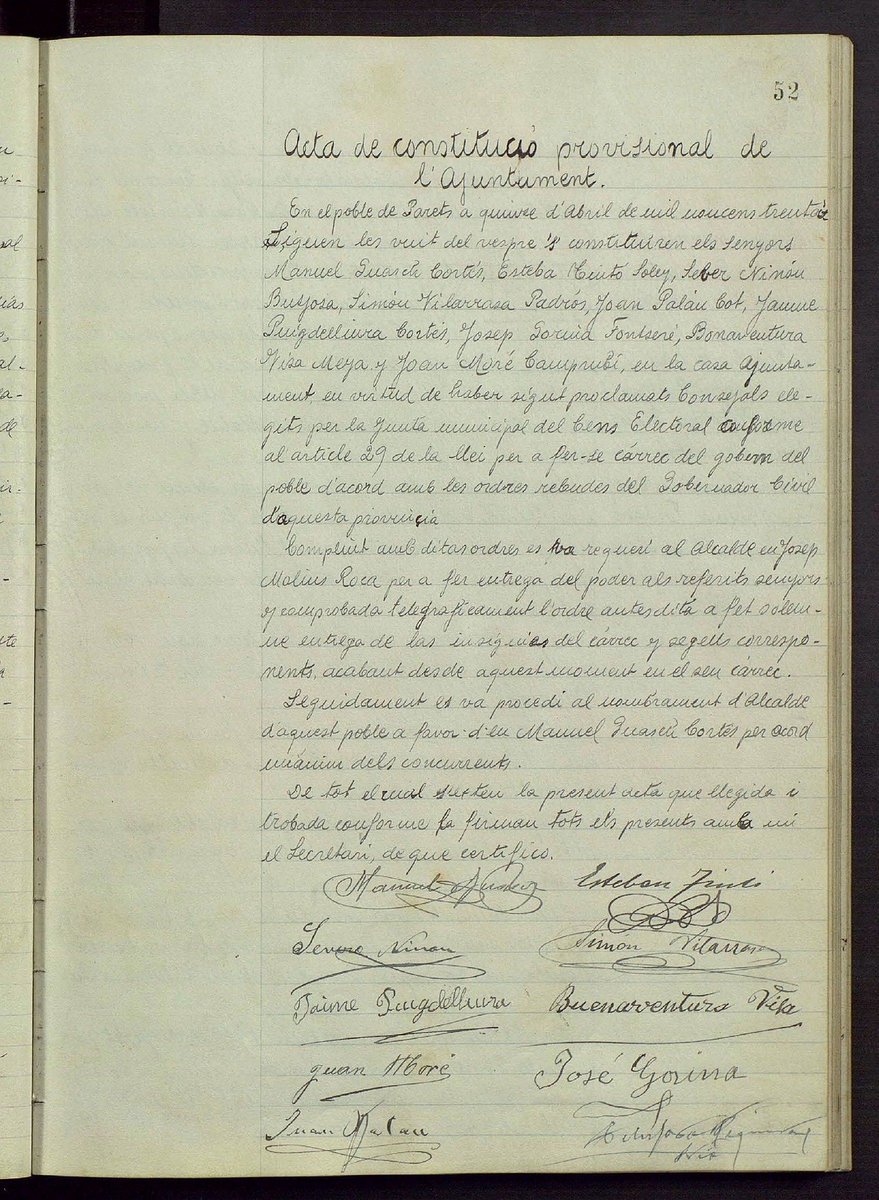 52
Acta de constitució provisional de
l'Ajuntament.
En el poble de Parets a quinze d'Abril de mil noucens trenta
Siguen les vuit del vespre 's constituïren els senyors
Manuel Guasch Cortés, Esteba Tintó Soley, Sever Ninón
Busfosa, Simón Vilarrasa Padrós, Joan Palau Cot, Jaume
Puigdellivra Cortés, Josep Gorina Fontseré, Bonaventura
Vila Meya y Joan Moré Camprubí, en la casa Ajunta-
ment, en virtud de haber sigut proclamats Consejals ele-
gits per la Junta municipal del Cens Electoral conforme
al article 29 de la llei per a fer-se cárrec del gobern del
poble d'acord amb les ordres rebudes del Gobernador Civil
d'aquesta provincia
Complint amb ditas ordres es va requerí al Alcalde en Josep
Molins Roca per a fer entrega del poder als referits senyors
y comprobada telegraficament l'ordre antes dita a fet solem-
ne entrega de las insignies del cárrec y segells correspo-
nents, acabant desde aquest moment en el seu cárrec.
Seguidament es va procedí al nombrament d'Alcalde
d'aquest poble a favor d'en Manuel Guasch Cortés per acord
unánim dels concurrents.
De tot el cual s'exten la present acta que llegida i
trobada conforme la firman tots els presents amb mi
el Secretari, de que certifico.
Manuel Guasch Esteban Tintó
Severo Ninon Simon Vilarrasa
Jaime Puigdellivra Buenaventura Vila
Juan Moré José Gorina
Juan Palau